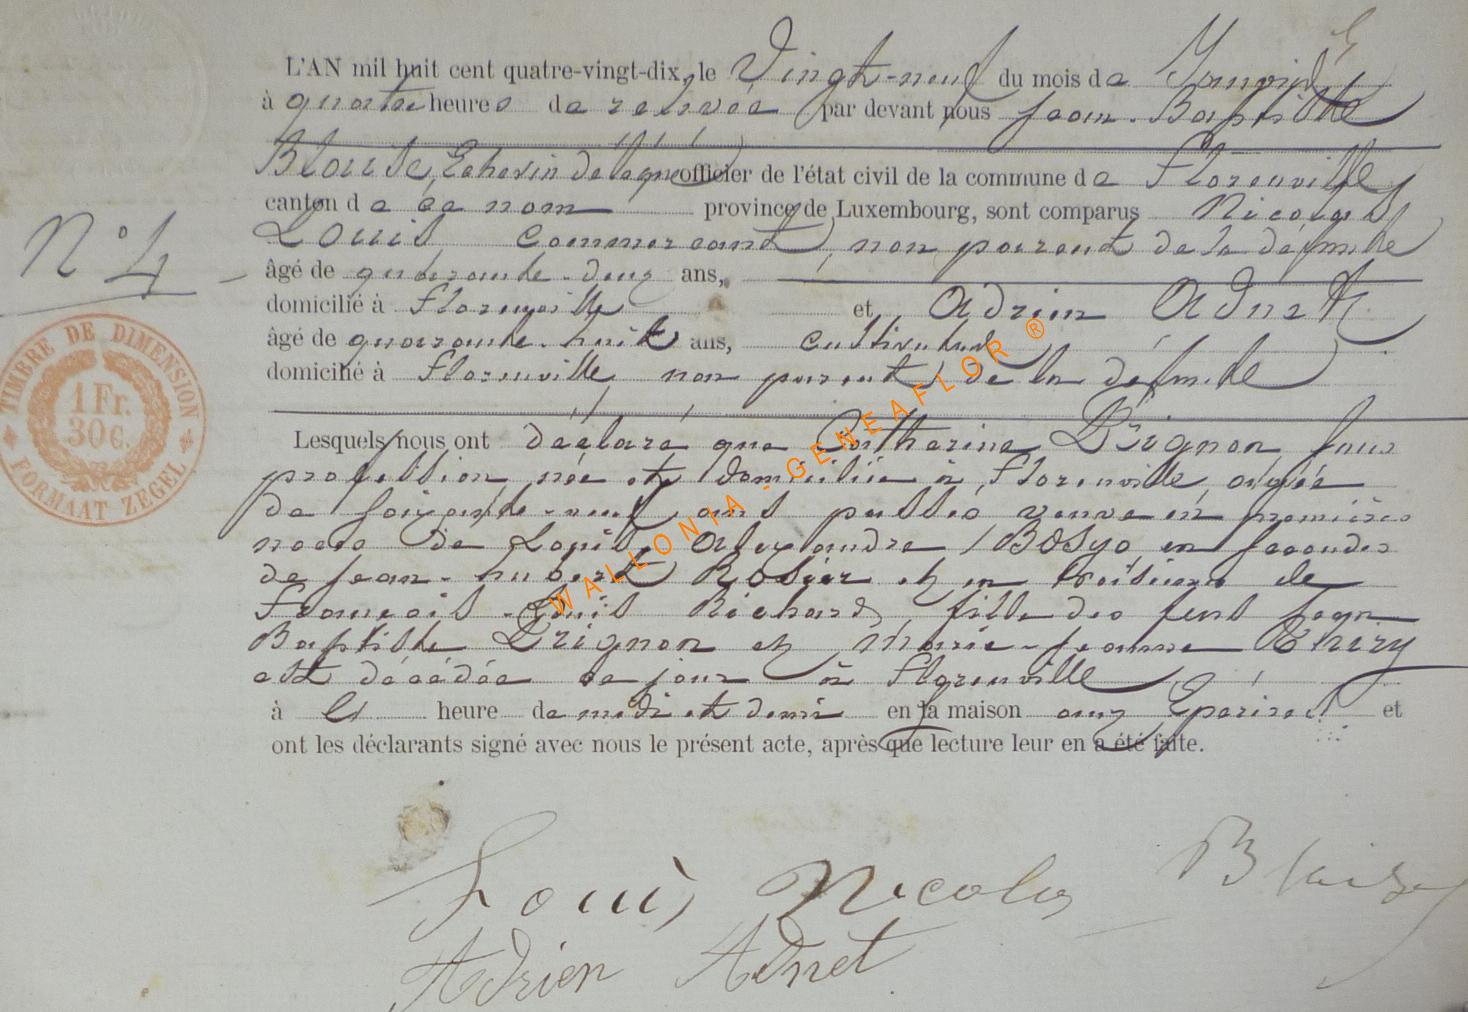 L'AN mil huit cent quatre-vingt-dix, le Vingt-neuf du mois de Janvier
à quatre heures de relevée par devant nous Jean-Baptiste
Blaise, Echevin délégué officier de l'état civil de la commune de Florenville
canton de ce nom province de Luxembourg, sont comparus Nicolas
Louis, commerçant, non parent de la défunte
N° 4
âgé de quarante-deux ans,
domicilié à Florenville et Adrien Adnet
âgé de quarante-huit ans, cultivateur
domicilié à Florenville, non parent de la défunte
TIMBRE DE DIMENSION
1 Fr.
30 C.
FORMAAT ZEGEL
Lesquels nous ont déclaré que Catherine Drignon sans
profession, née et domiciliée à Florenville, âgée
de soixante-neuf ans passés, veuve en premières
noces de Louis Alexandre en secondes
de Jean-hubert Rosier et en troisième de
François-Louis Richard, fille des feus Jean
Baptiste Drignon et Marie-Jeanne Thiry
est décédée ce jour à Florenville
à heure de midi et demi en la maison aux et
ont les déclarants signé avec nous le présent acte, après que lecture leur en a été faite.
WALLONIA - GENEAFLOR ®
Louis Nicolas Blaise
Adrien Adnet